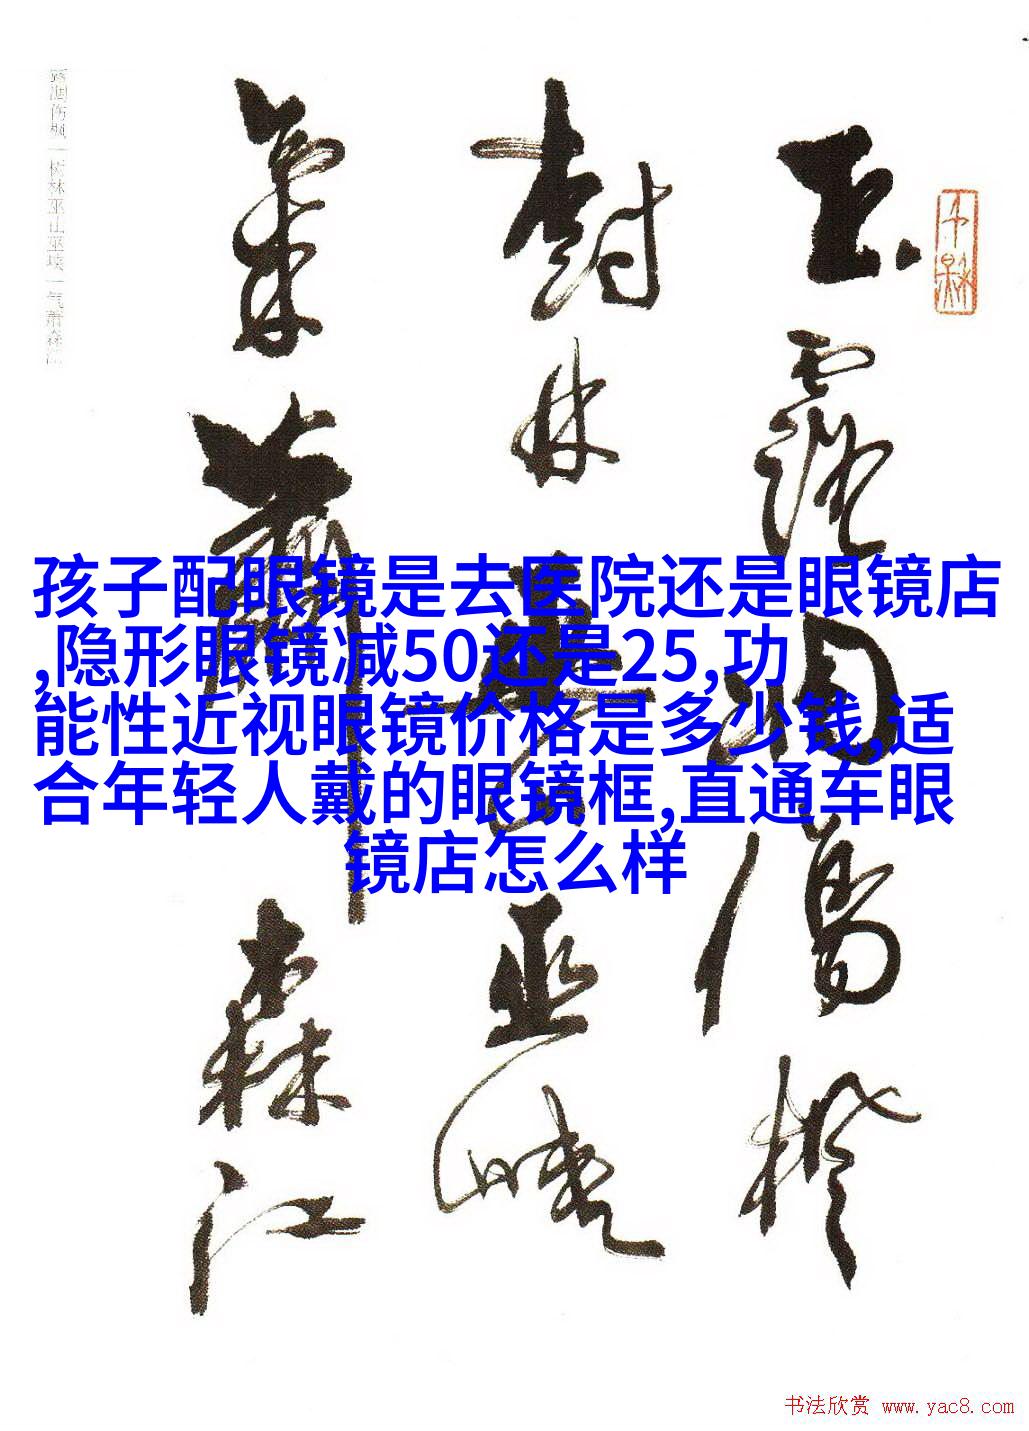 玉露凋伤枫
树林巫山巫峡
气萧森江
孩子配眼镜是去医院还是眼镜店
,隐形眼镜减50还是25,功
能性近视眼镜价格是多少钱,适
合年轻人戴的眼镜框,直通车眼
镜店怎么样
露凋伤枫一树林巫山巫峡一气萧森江
书法欣赏 www.yac8.com